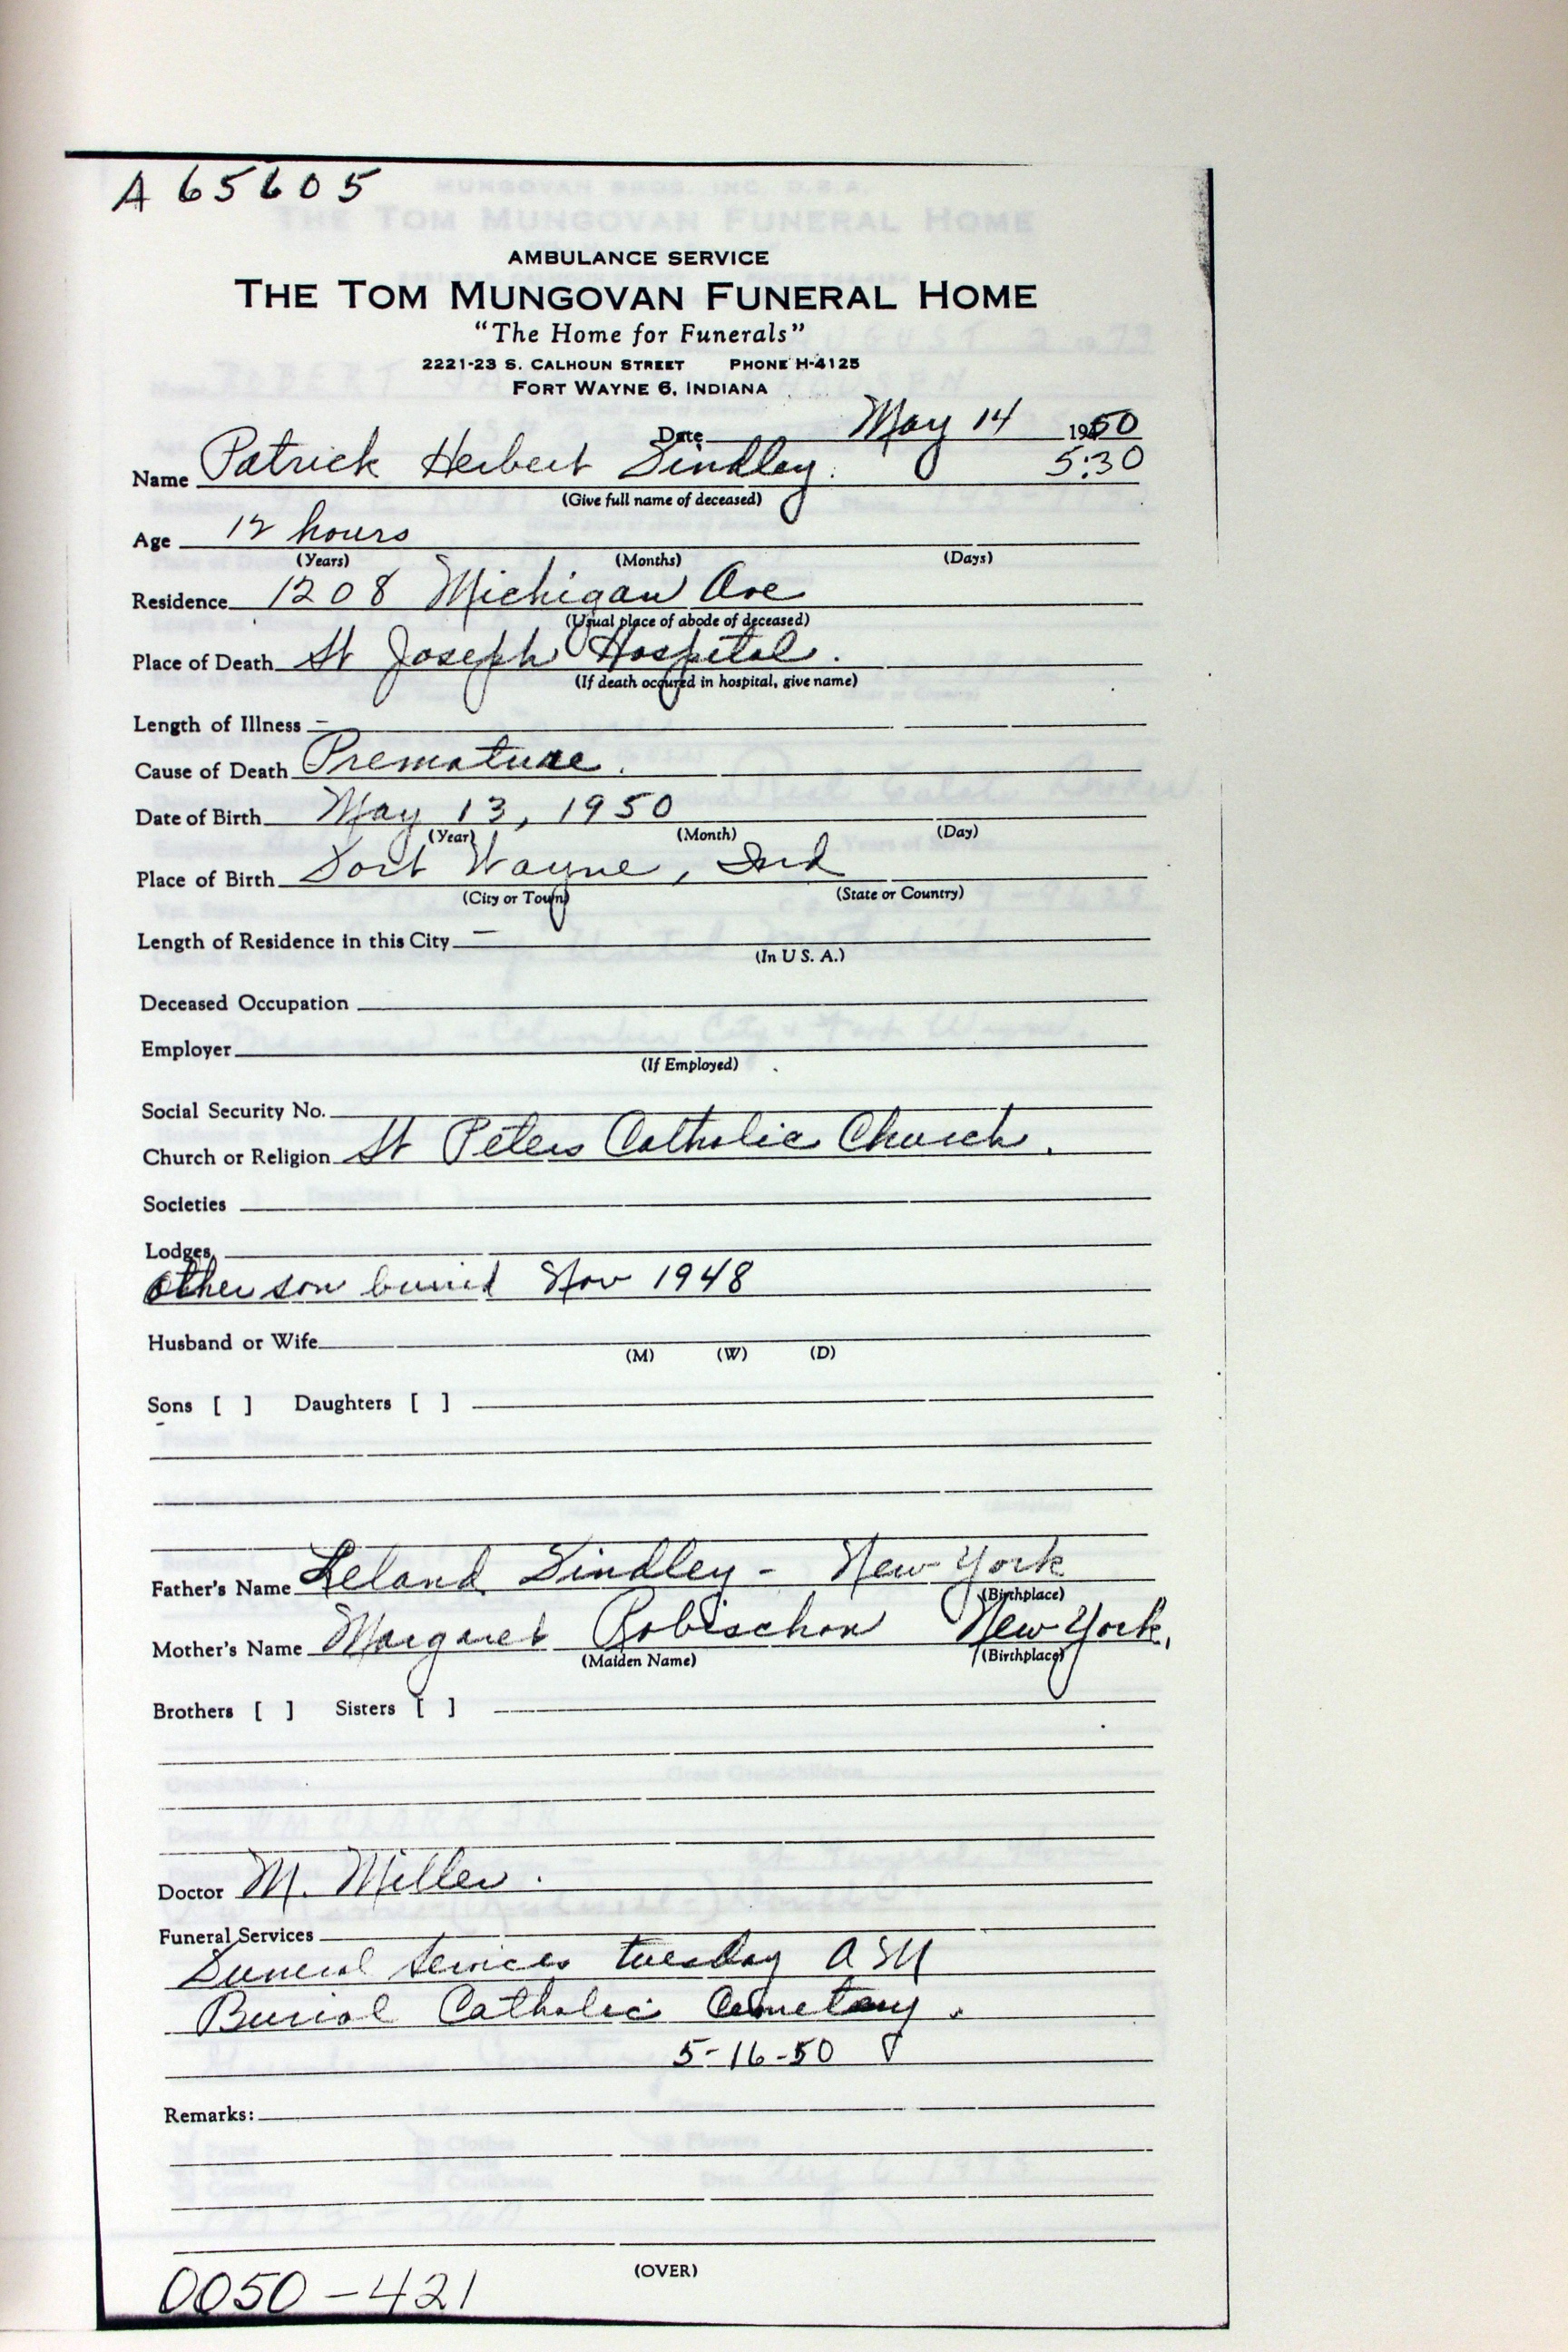 A 65605
AMBULANCE SERVICE
THE TOM MUNGOVAN FUNERAL HOME
"The Home for Funerals"
2221-23 S. CALHOUN STREET PHONE H-4125
FORT WAYNE 6, INDIANA
Date May 14 1950
5:30
Name Patrick Herbert Lindley.
(Give full name of deceased)
Age 12 hours
(Years) (Months) (Days)
Residence 1208 Michigan Ave
(Usual place of abode of deceased)
Place of Death St Joseph Hospital.
(If death occured in hospital, give name)
Length of Illness –
Cause of Death Premature.
Date of Birth May 13, 1950
(Year) (Month) (Day)
Place of Birth Fort Wayne, Ind
(City or Town) (State or Country)
Length of Residence in this City –
(In U S. A.)
Deceased Occupation
Employer
(If Employed)
Social Security No.
Church or Religion St Peters Catholic Church.
Societies
Lodges
Other son buried Nov 1948
Husband or Wife
(M) (W) (D)
Sons [ ] Daughters [ ]
Father's Name Leland Lindley - New York
(Birthplace)
Mother's Name Margaret Robischon New York,
(Maiden Name) (Birthplace)
Brothers [ ] Sisters [ ]
Doctor M. Miller.
Funeral Services
Funeral Services tuesday A M
Burial Catholic Cemetary.
5-16-50
Remarks:
(OVER)
0050-421